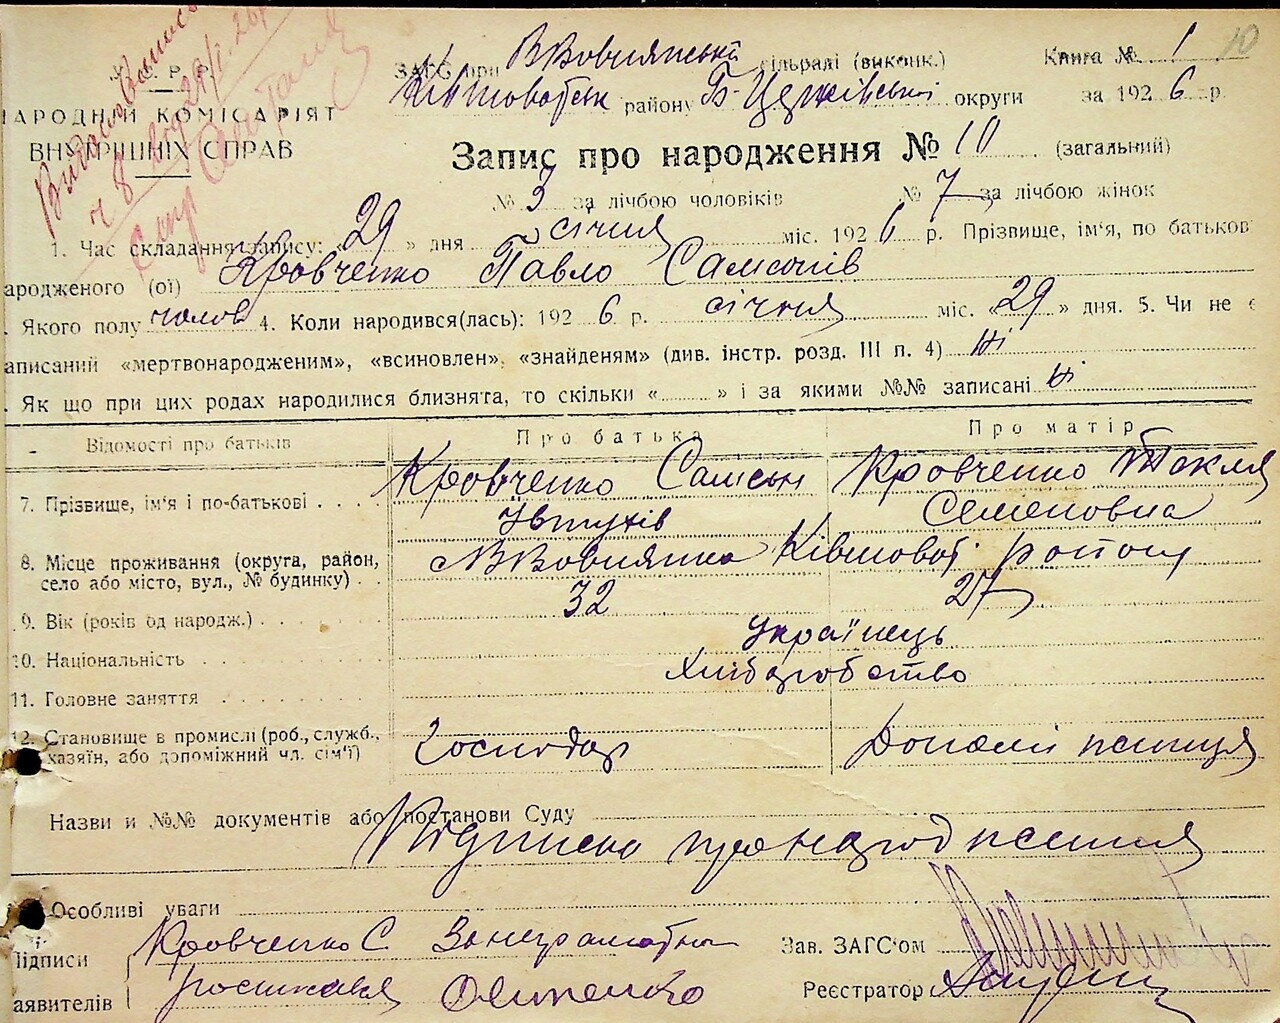 У.С.Р.Р.
НАРОДНІЙ КОМІСАРІЯТ
ВНУТРІШНІХ СПРАВ
ЗАГС при В Вовнянській сільраді (виконк.) Книга № 1 10
району Б-Церківської округи за 1926 р.
Запис про народження № 10 (загальний)
№ 3 за лічбою чоловіків № 7 за лічбою жінок
1. Час складання запису: «29» дня січня міс. 1926 р. Прізвище, ім'я, по батьков
ародженого (ої) Кровченко Павло Самсонів
. Якого полу чолов 4. Коли народився(лась): 1926 р. січня міс. «29» дня. 5. Чи не є
аписаний «мертвонародженим», «всиновлен», «знайденям» (див. інстр. розд. III п. 4) Ні
. Як що при цих родах народилися близнята, то скільки «......» і за якими №№ записані Ні
Відомості про батьків Про батька Про матір
7. Прізвище, ім'я і по-батькові Кровченко Самсон Кровченко Текля
Івтухів Семеновна
8. Місце проживання (округа, район, село або місто, вул., № будинку) В Вовнянка району
9. Вік (років од народж.) 32 27
10. Національність Українець
11. Головне заняття Хліборобство
12. Становище в промислі (роб., служб., хазяїн, або допоміжний чл. сім'ї) Господар
Назви и №№ документів або постанови Суду
Підписка про народження
Особливі уваги
Підписи Кровченко С. За неграмотн Зав. ЗАГС'ом
аявителів Реєстратор